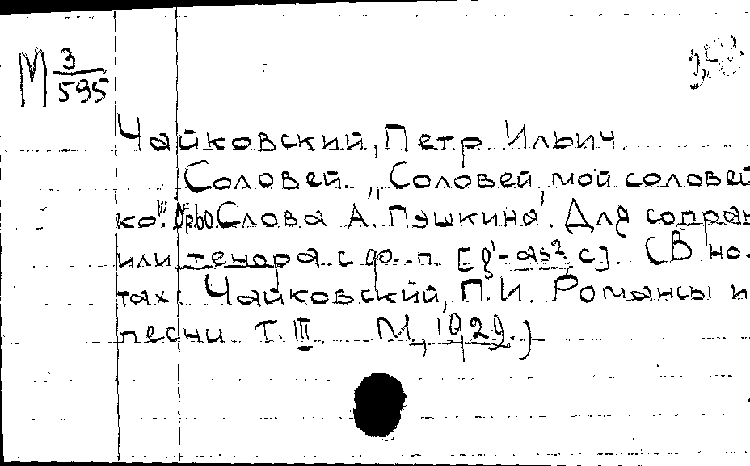 М 3/595
Чайковский, Петр Ильич
Соловей. „Соловей мой соловей
ко". Слова А. Пушкина. Для сопран
или тенора с фо-п. [g¹-as² c]. (В но-
тах: Чайковский, П.И. Романсы и
песни Т. III М, 1929.)